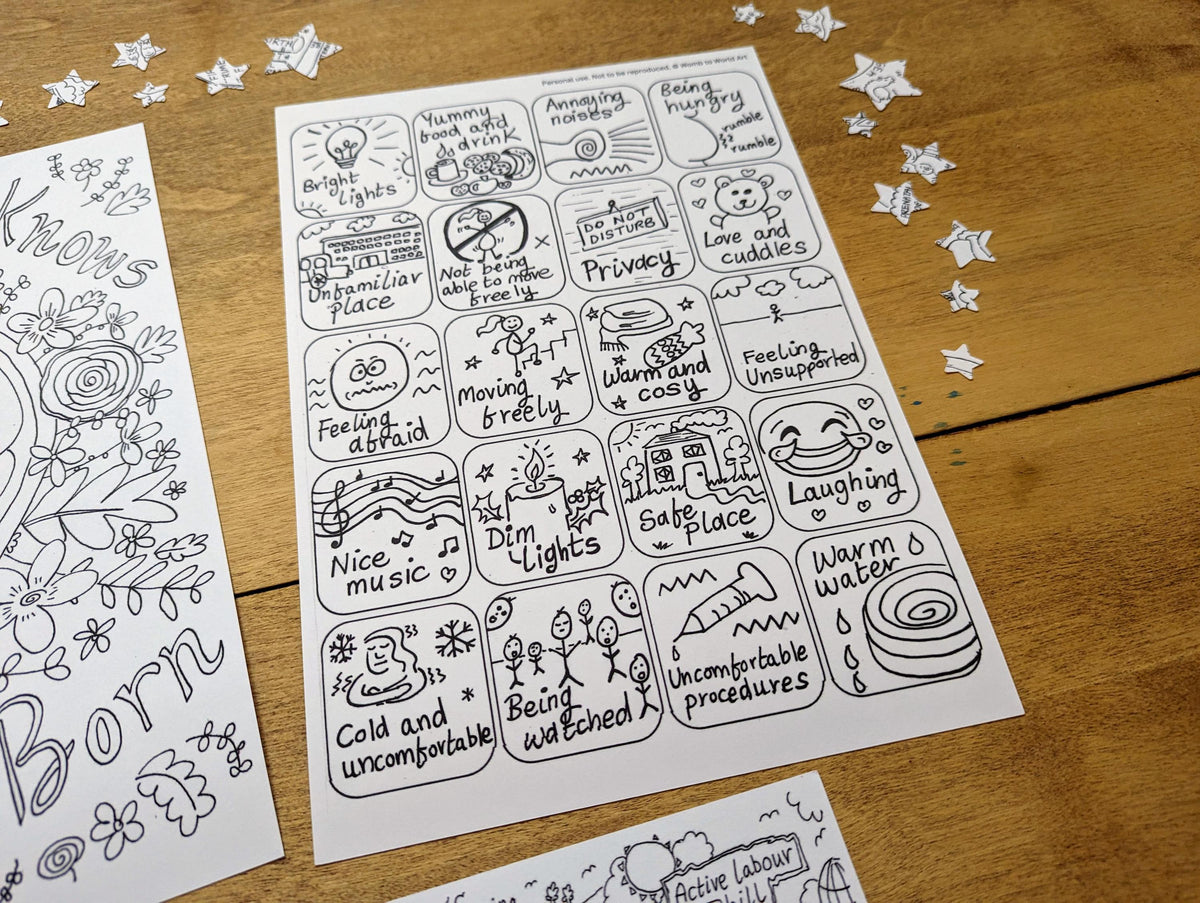 Personal use. Not to be reproduced. © Womb to World Art
Bright
lights
Yummy
food and
drink
Annoying
noises
Being
hungry
rumble
rumble
Unfamiliar
place
Not being
able to move
freely
DO NOT
DISTURB
Privacy
Love and
cuddles
Feeling
afraid
Moving
freely
Warm and
cosy
Feeling
Unsupported
Nice
music
Dim
Lights
Safe
Place
Laughing
Cold and
uncomfortable
Being
watched
Uncomfortable
procedures
Warm
water
Knows
Born
Active Labour